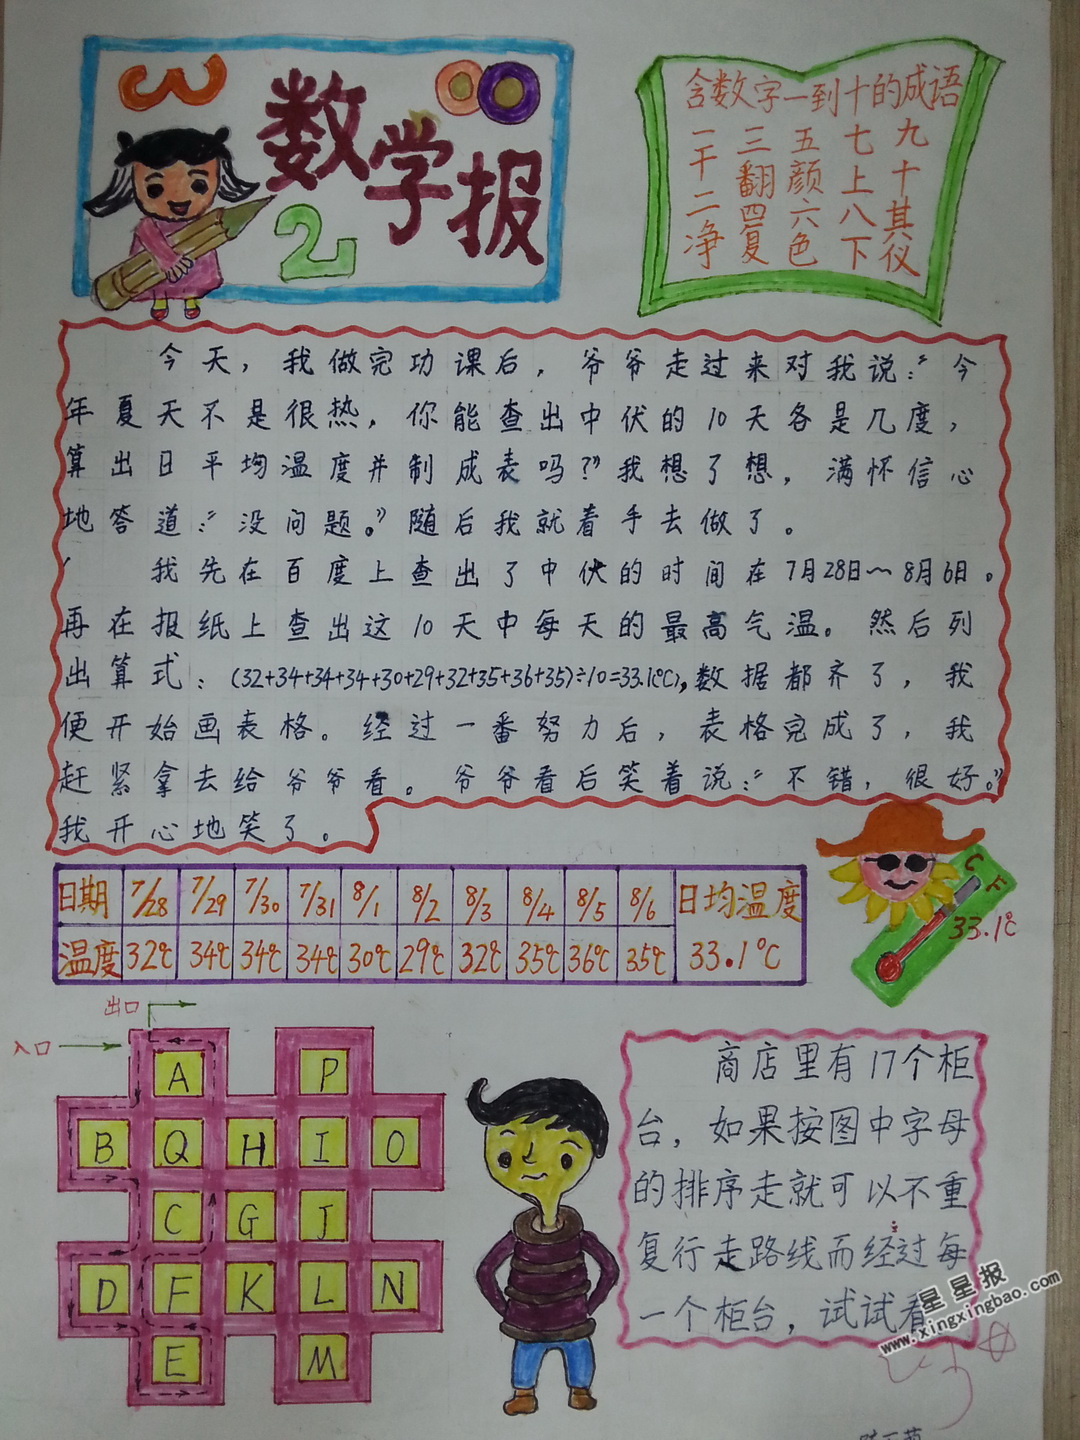 数学报
2
含数字一到十的成语
一干二净
三翻四复
五颜六色
七上八下
九十其仪
今天，我做完功课后，爷爷走过来对我说：“今
年夏天不是很热，你能查出中伏的10天各是几度，
算出日平均温度并制成表吗？”我想了想，满怀信心
地答道：“没问题。”随后我就着手去做了。
我先在百度上查出了中伏的时间在7月28日～8月6日。
再在报纸上查出这10天中每天的最高气温。然后列
出算式：(32+34+34+34+30+29+32+35+36+35)÷10=33.1(℃)，数据都齐了，我
便开始画表格。经过一番努力后，表格完成了，我
赶紧拿去给爷爷看。爷爷看后笑着说：“不错，很好。”
我开心地笑了。
日期 7/28 7/29 7/30 7/31 8/1 8/2 8/3 8/4 8/5 8/6 日均温度
温度 32℃ 34℃ 34℃ 34℃ 30℃ 29℃ 32℃ 35℃ 36℃ 35℃ 33.1℃
C F
33.1℃
出口
入口
A P
B Q H I O
C G J
D F K L N
E M
商店里有17个柜
台，如果按图中字母
的排序走就可以不重
复行走路线而经过每
一个柜台，试试看
星星报
www.xingxingbao.com